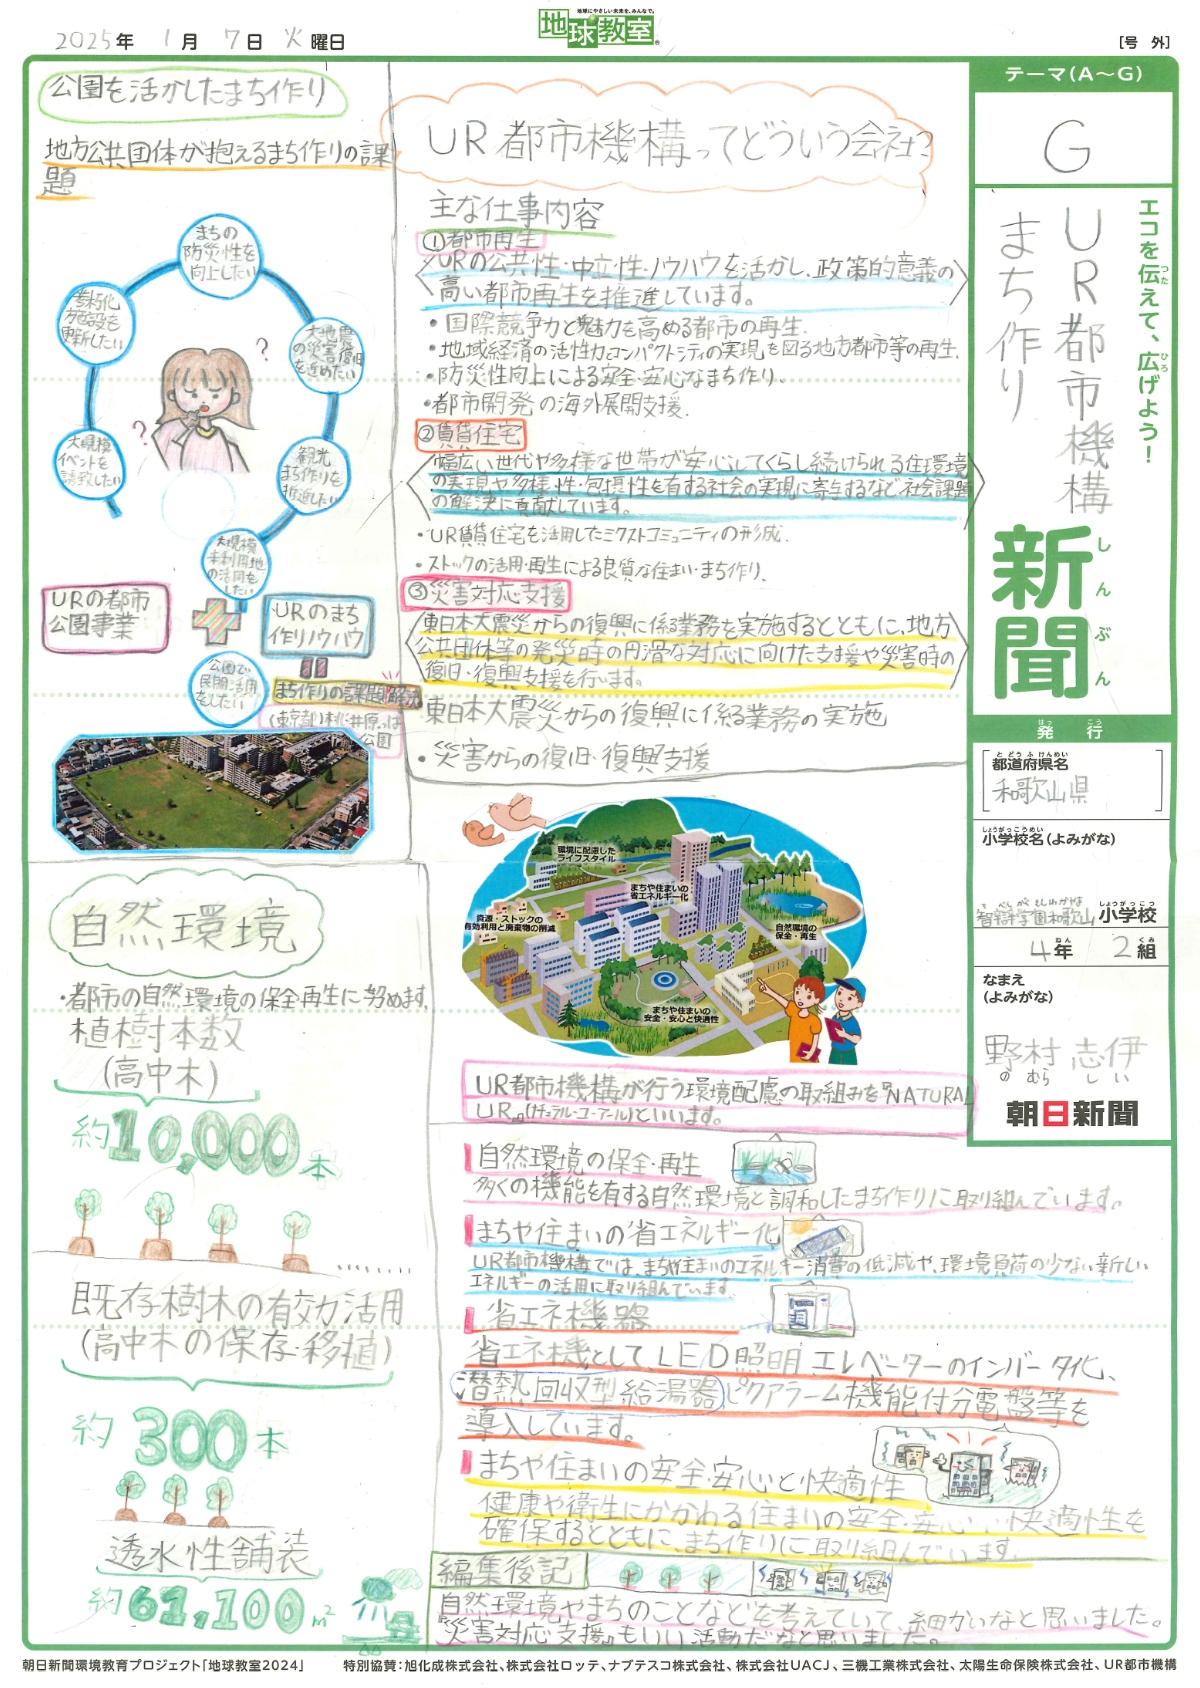 2025年 1月 7日 火曜日
地球にやさしい未来を、みんなで。
地球教室
[号 外]
テーマ(A〜G)
G
エコを伝えて、広げよう!
つた
ひろ
UR都市機構
まち作り
新聞
しんぶん
発行
はっ こう
都道府県名
と どう ふ けんめい
和歌山県
小学校名(よみがな)
しょうがっこうめい
智辯学園和歌山小学校
しょうがっこう
4年 2組
ねん くみ
なまえ
(よみがな)
野村 志伊
のむら しい
朝日新聞
UR都市機構ってどういう会社?
主な仕事内容
①都市再生
URの公共性・中立性・ノウハウを活かし、政策的意義の
高い都市再生を推進しています。
・国際競争力と魅力を高める都市の再生.
・地域経済の活性力コンパクトシティの実現を図る地方都市等の再生.
・防災性向上による安全・安心なまち作り.
・都市開発の海外展開支援.
②賃貸住宅
幅広い世代や多様な世帯が安心してくらし続けられる住環境
の実現や多様性・包摂性を有する社会の実現に寄与するなど社会課題
の解決に貢献しています。
・UR賃貸住宅を活用したミクストコミュニティの形成.
・ストックの活用・再生による良質な住まい・まち作り.
③災害対応支援
東日本大震災からの復興に係る業務を実施するとともに、地方
公共団体等の発災時の円滑な対応に向けた支援や災害時の
復旧・復興支援を行います。
・東日本大震災からの復興に係る業務の実施
・災害からの復旧・復興支援
公園を活かしたまち作り
地方公共団体が抱えるまち作りの課
題
まちの
防災性を
向上したい
老朽化
施設を
更新したい
大地震
の災害復旧
を進めたい
?
?
大規模
イベントを
誘致したい
観光
まち作りを
推進したい
大規模
未利用地
の活用を
したい
URの都市
公園事業
URのまち
作りノウハウ
公園で
民間活用
をしたい
まち作りの課題解決
(東京都)桃井原っぱ
公園
環境に配慮した
ライフスタイル
まちや住まいの
省エネルギー化
資源・ストックの
有効利用と廃棄物の削減
自然環境の
保全・再生
まちや住まいの
安全・安心と快適性
UR都市機構が行う環境配慮の取組みを『NATURAL
UR』(ナチュラル・ユーアール)といいます。
自然環境の保全・再生
多くの機能を有する自然環境と調和したまち作りに取り組んでいます。
まちや住まいの省エネルギー化
UR都市機構では、まちや住まいのエネルギー消費の低減や、環境負荷の少ない新しい
エネルギーの活用に取り組んでいます。
省エネ機器
省エネ機として、LED照明、エレベーターのインバータ化、
潜熱回収型給湯器ピクアラーム機能付分電盤等を
導入しています。
まちや住まいの安全・安心と快適性
健康や衛生にかかわる住まいの安全・安心、快適性を
確保するとともに、まち作りに取り組んでいます.
編集後記
自然環境やまちのことなどを考えていて、細かいなと思いました。
『災害対応支援』もいい活動だなと思いました。
自然環境
・都市の自然環境の保全・再生に努めます.
植樹本数
(高中木)
約10,000本
既存樹木の有効活用
(高中木の保存・移植)
約300本
透水性舗装
約61,100m²
朝日新聞環境教育プロジェクト「地球教室2024」 特別協賛:旭化成株式会社、株式会社ロッテ、ナブテスコ株式会社、株式会社UACJ、三機工業株式会社、太陽生命保険株式会社、UR都市機構